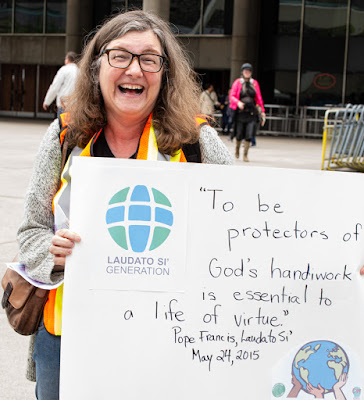 LAUDATO SI'
GENERATION
"To be
protectors of
God's handiwork
is essential to
a life of virtue."
Pope Francis, Laudato Si'
May 24, 2015